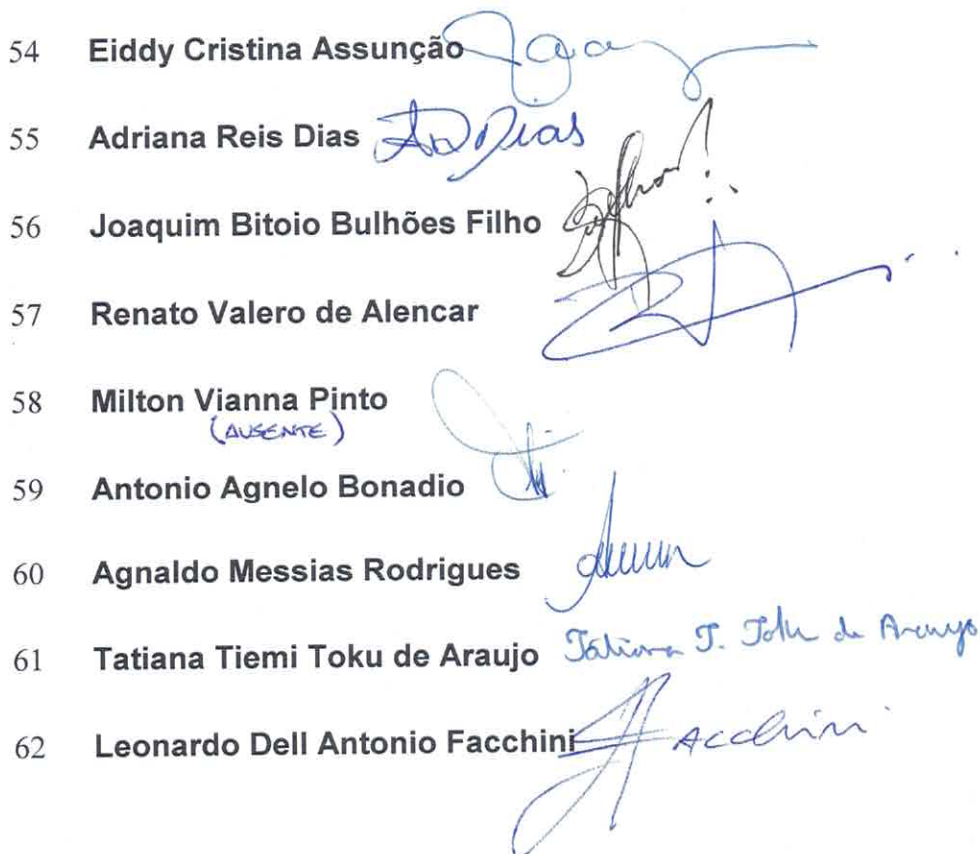 54 Eiddy Cristina Assunção
55 Adriana Reis Dias Dias
56 Joaquim Bitoio Bulhões Filho
57 Renato Valero de Alencar
58 Milton Vianna Pinto
(AUSENTE)
59 Antonio Agnelo Bonadio
60 Agnaldo Messias Rodrigues
61 Tatiana Tiemi Toku de Araujo Tatiana T. Toku de Araujo
62 Leonardo Dell Antonio Facchini Facchini